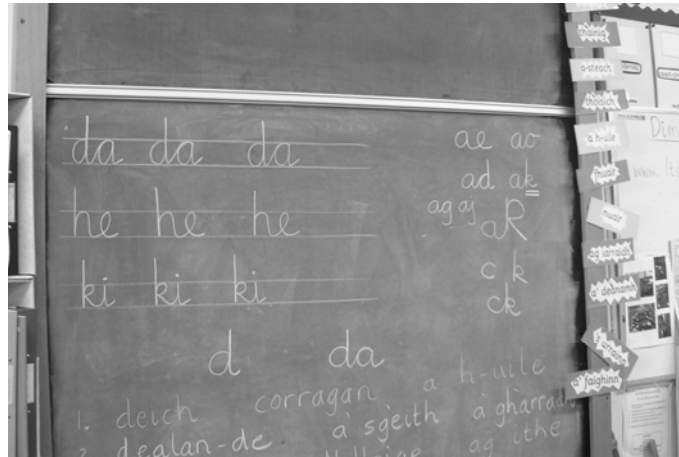 da da da
he he he
ki ki ki
ae ao
ad ak
ag aj
aR
c k
ck
d da
1. deich corragan a h-uile
2. dealan-de a' sgeith a' gharradh
ag ithe
thàinig
a-steach
thòisich
a h-uile
fhuair
nuair
ag iarraidh
a' dèanamh
a' faighinn
Dim
www.